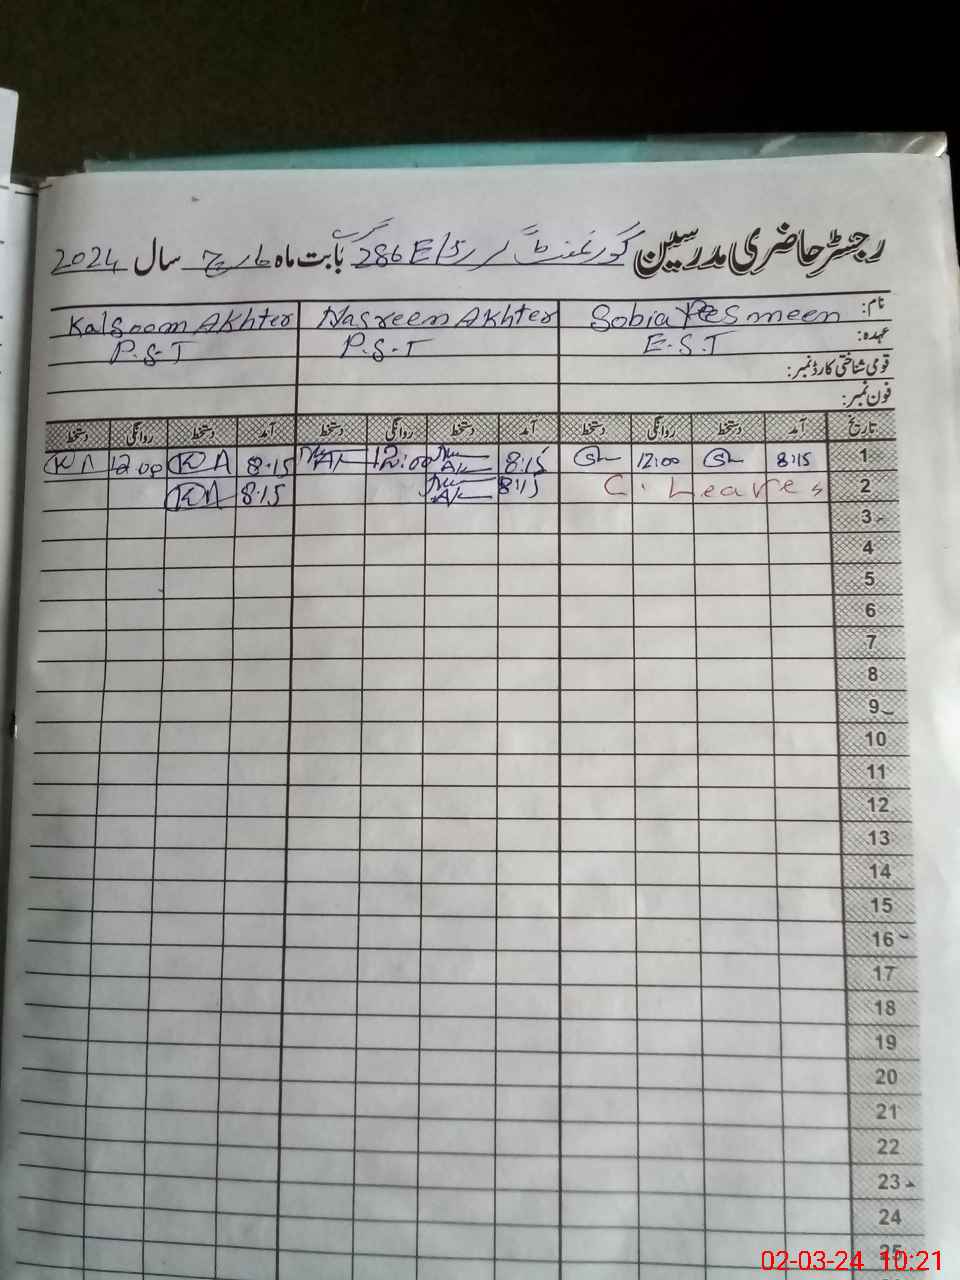 رجسٹر حاضری مدرسین گورنمنٹ 286 E/B بابت ماہ مارچ سال 2024
نام: Sobia Yesmeen Nasreen Akhter Kalsoom Akhter
عہدہ: E.S.T P.S.T P.S.T
قومی شناختی کارڈ نمبر:
فون نمبر:
تاریخ آمد دستخط روانگی دستخط آمد دستخط روانگی دستخط آمد دستخط روانگی دستخط
1 8:15 12:00 8:15 12:00 8:15 KA 12:00 KA
2 C. Leaves 8:15 8:15 KA
3
4
5
6
7
8
9
10
11
12
13
14
15
16
17
18
19
20
21
22
23
24
25
02-03-24 10:21